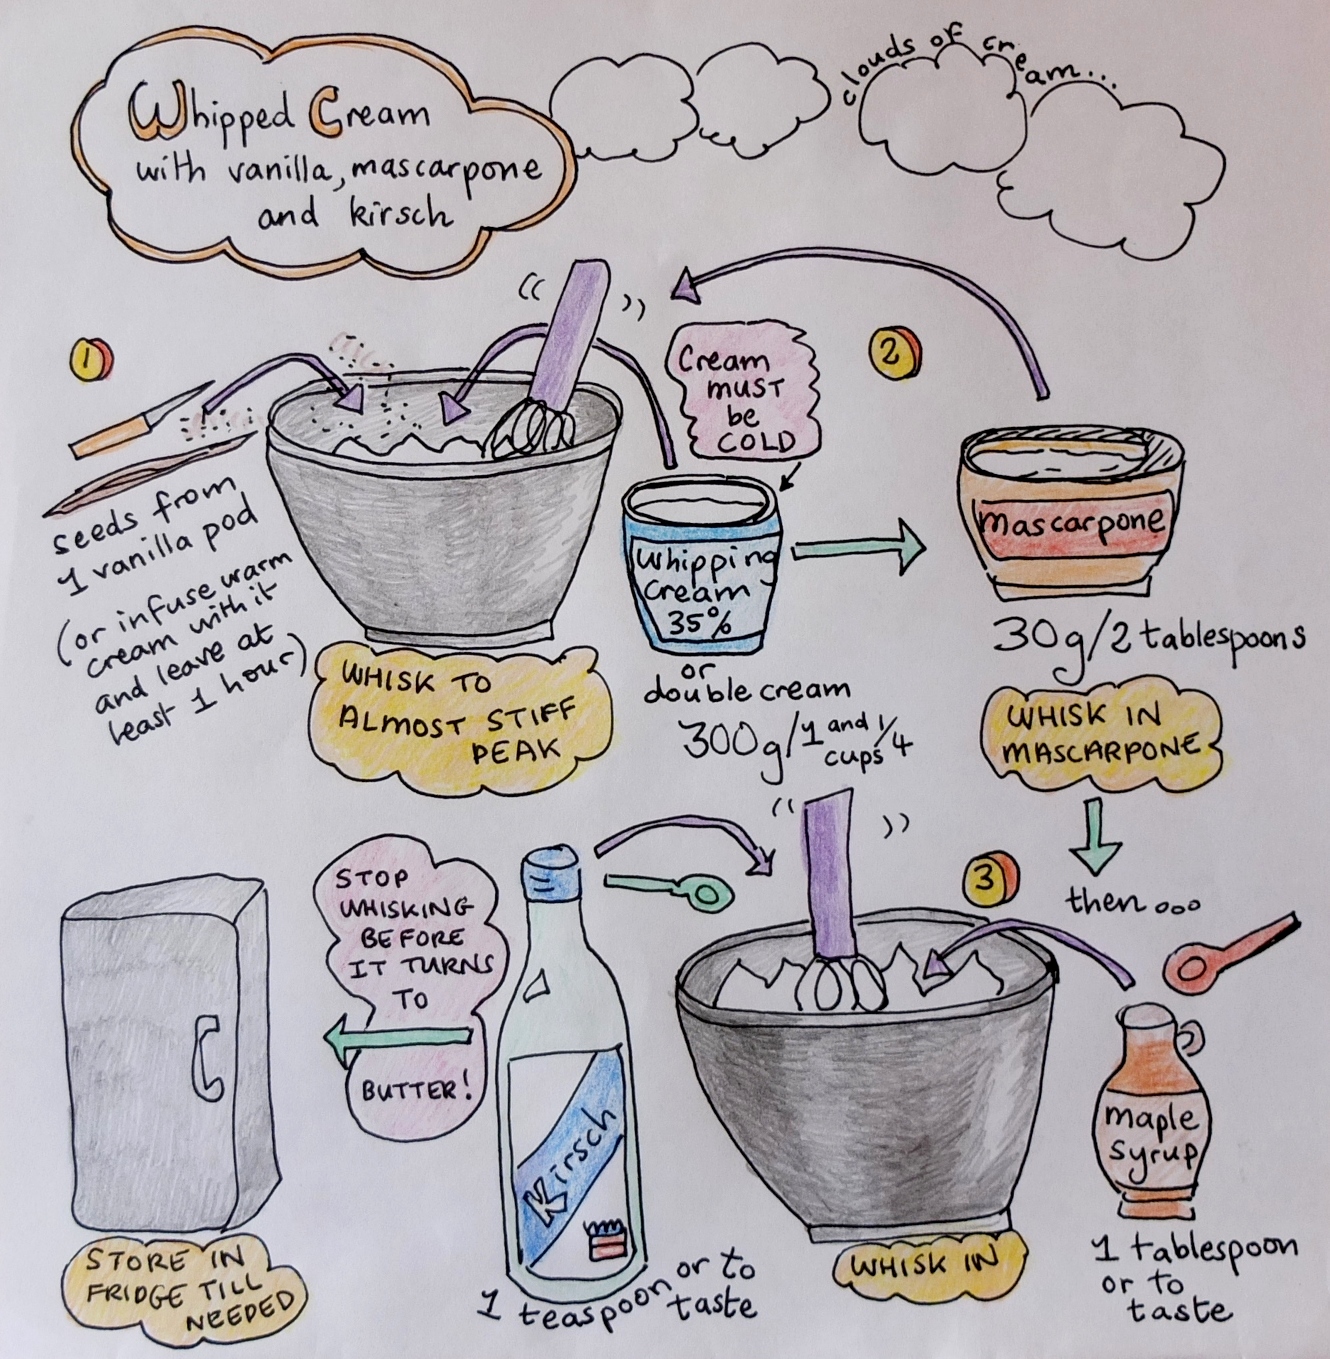 Whipped Cream
with vanilla, mascarpone
and kirsch
clouds of cream...
1
seeds from
1 vanilla pod
(or infuse warm
cream with it
and leave at
least 1 hour)
WHISK TO
ALMOST STIFF
PEAK
Cream
MUST
be
COLD
Whipping
Cream
35%
or
double cream
300g/1 and 1/4
cups
2
mascarpone
30g/2 tablespoons
WHISK IN
MASCARPONE
then...
3
maple
syrup
1 tablespoon
or to
taste
WHISK IN
Kirsch
1 teaspoon or to
taste
STOP
WHISKING
BEFORE
IT TURNS
TO
BUTTER!
STORE IN
FRIDGE TILL
NEEDED